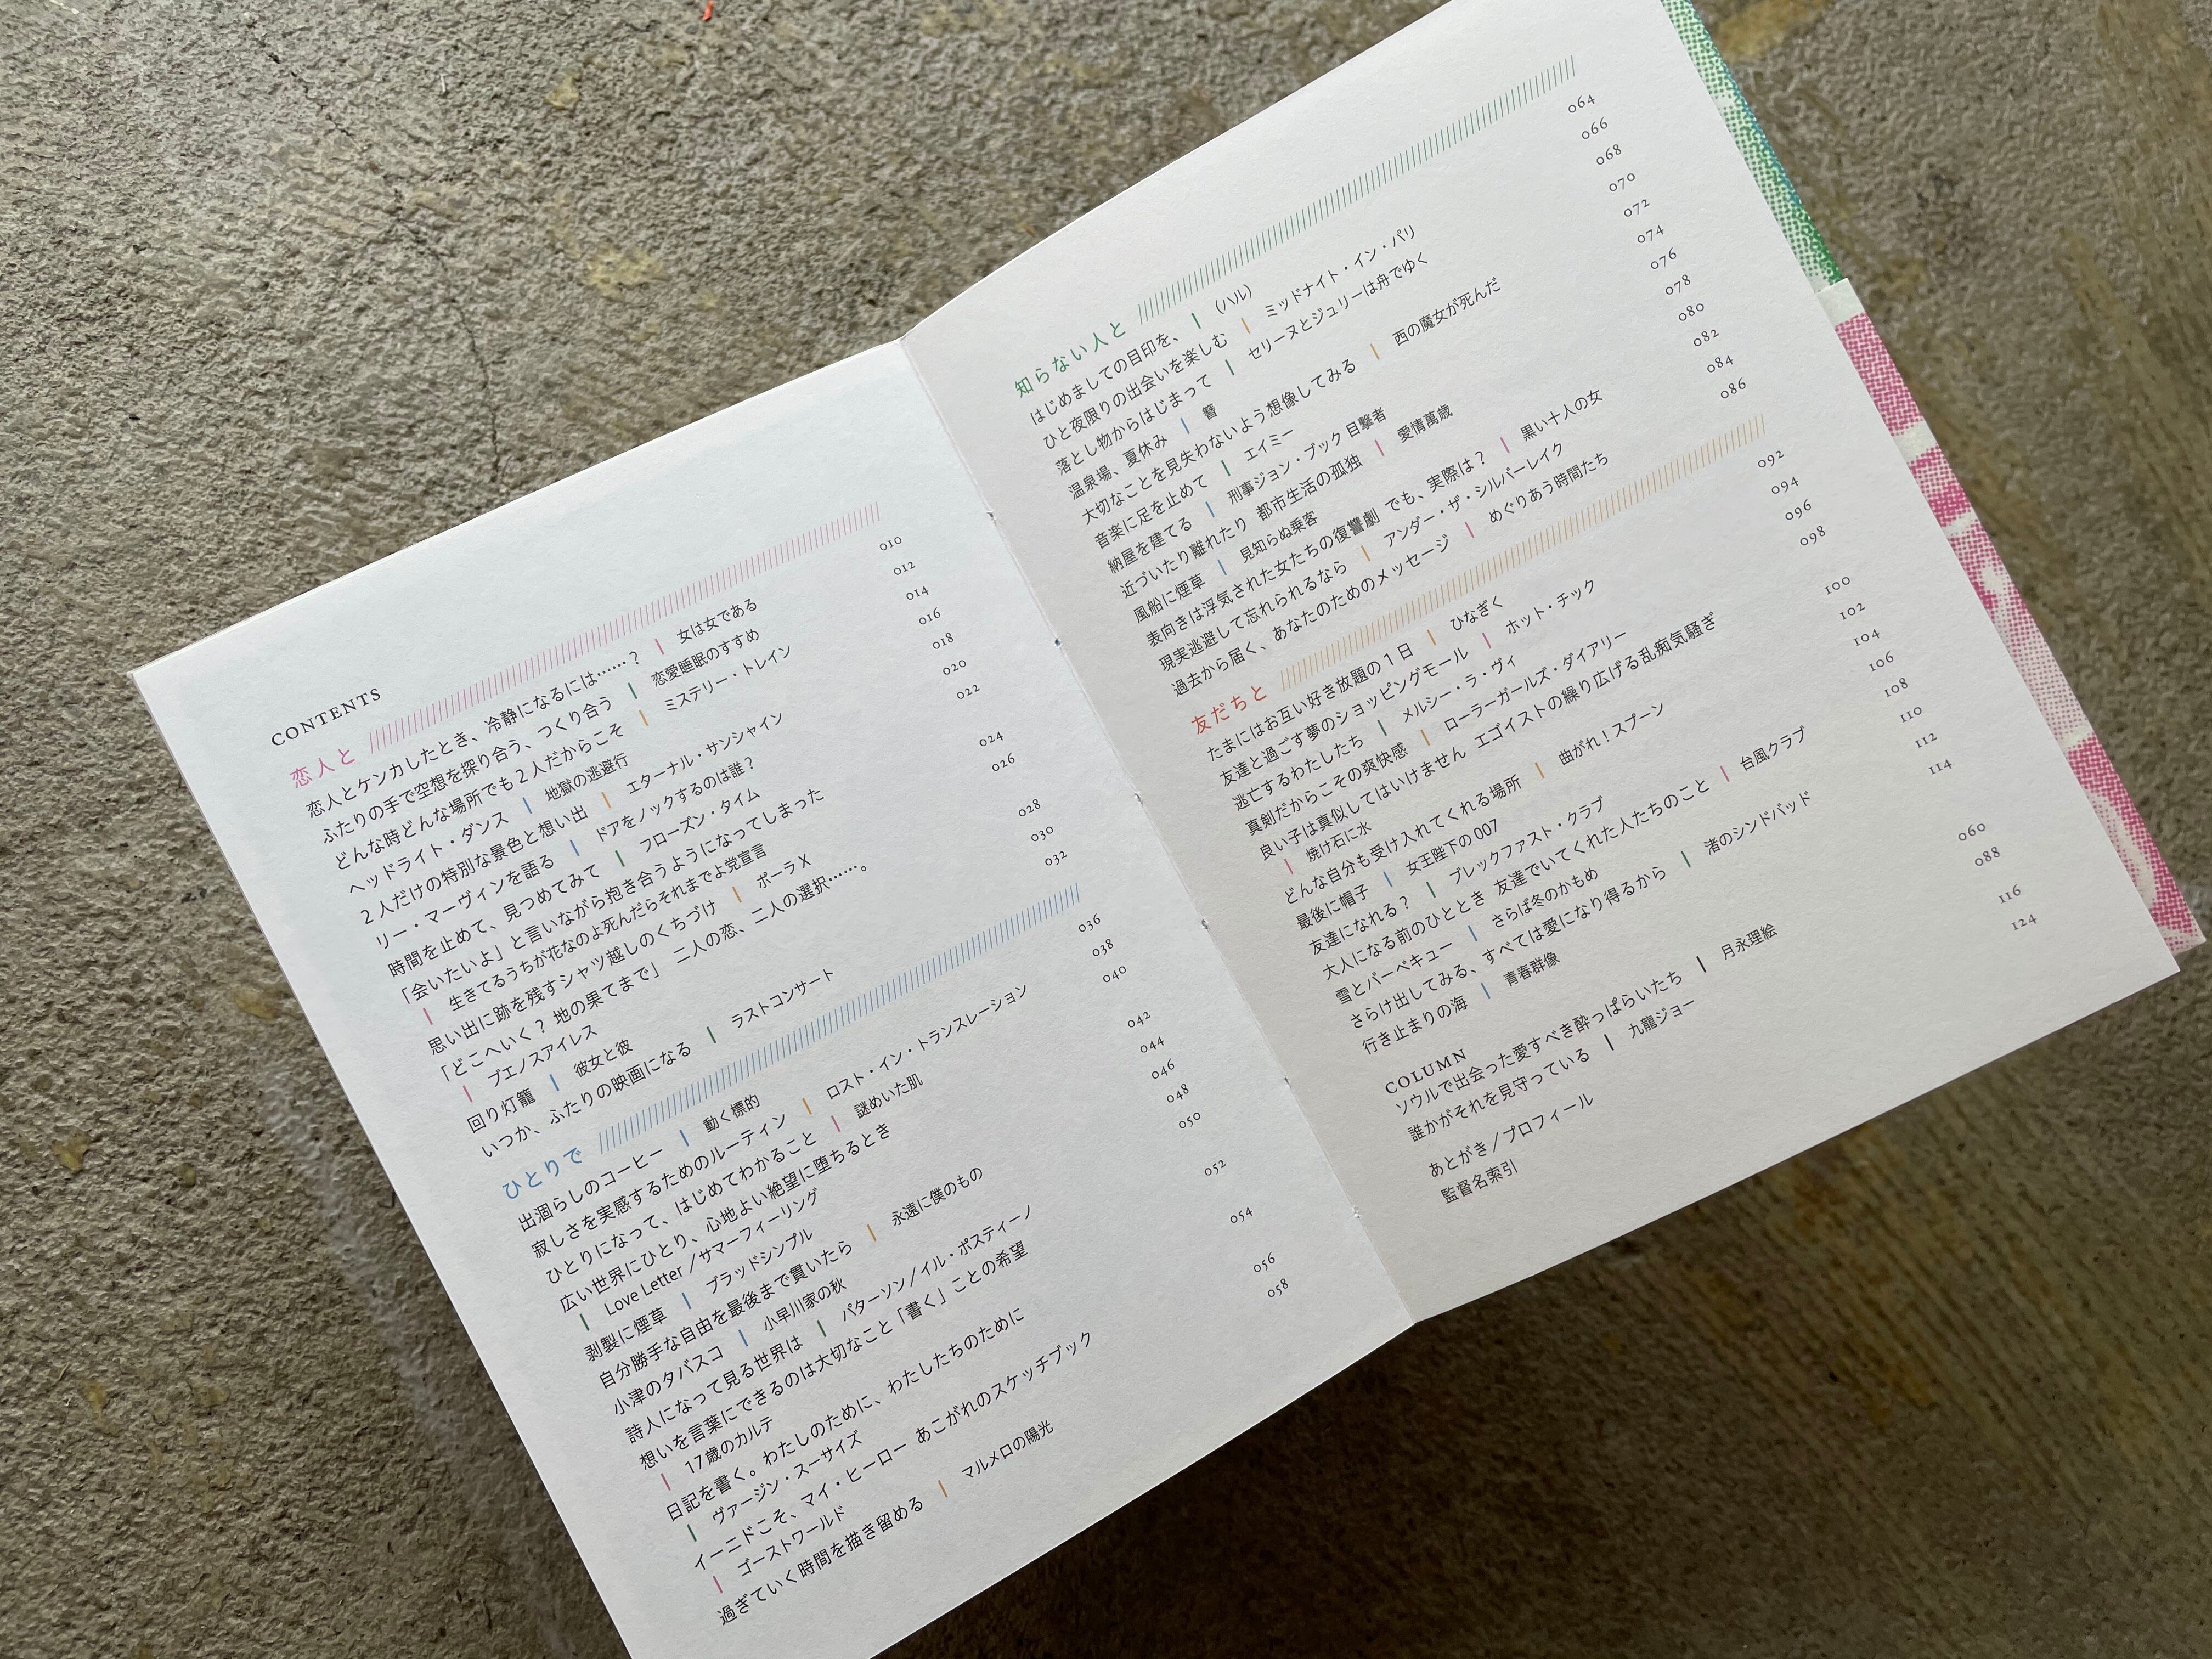 CONTENTS
恋人と
恋人とケンカしたとき、冷静になるには……？ | 女は女である 010
ふたりの手で空想を探り合う、つくり合う | 恋愛睡眠のすすめ 012
どんな時どんな場所でも2人だからこそ | ミステリー・トレイン 014
ヘッドライト・ダンス | 地獄の逃避行 016
2人だけの特別な景色と想い出 | エターナル・サンシャイン 018
リー・マーヴィンを語る | ドアをノックするのは誰？ 020
時間を止めて、見つめてみて | フローズン・タイム 022
「会いたいよ」と言いながら抱き合うようになってしまった
| 生きてるうちが花なのよ死んだらそれまでよ党宣言 024
思い出に跡を残すシャツ越しのくちづけ | ポーラX 026
「どこへいく？ 地の果てまで」 二人の恋、二人の選択……。
| ブエノスアイレス 028
回り灯籠 | 彼女と彼 030
いつか、ふたりの映画になる | ラストコンサート 032
ひとりで
出涸らしのコーヒー | 動く標的 036
寂しさを実感するためのルーティン | ロスト・イン・トランスレーション 038
ひとりになって、はじめてわかること | 謎めいた肌 040
広い世界にひとり、心地よい絶望に堕ちるとき
| Love Letter／サマーフィーリング 042
剥製に煙草 | ブラッドシンプル 044
自分勝手な自由を最後まで貫いたら | 永遠に僕のもの 046
小津のタバスコ | 小早川家の秋 048
詩人になって見る世界は | パターソン／イル・ポスティーノ 050
想いを言葉にできるのは大切なこと「書く」ことの希望
| 17歳のカルテ 052
日記を書く。わたしのために、わたしたちのために
| ヴァージン・スーサイズ 054
イーニドこそ、マイ・ヒーロー あこがれのスケッチブック
| ゴーストワールド 056
過ぎていく時間を描き留める | マルメロの陽光 058
知らない人と
はじめましての目印を、 | （ハル） 064
ひと夜限りの出会いを楽しむ | ミッドナイト・イン・パリ 066
落とし物からはじまって | セリーヌとジュリーは舟でゆく 068
温泉場、夏休み | 簪 070
大切なことを見失わないよう想像してみる | 西の魔女が死んだ 072
音楽に足を止めて | エイミー 074
納屋を建てる | 刑事ジョン・ブック 目撃者 076
近づいたり離れたり 都市生活の孤独 | 愛情萬歳 078
風船に煙草 | 見知らぬ乗客 080
表向きは浮気された女たちの復讐劇 でも、実際は？ | 黒い十人の女 082
現実逃避して忘れられるなら | アンダー・ザ・シルバーレイク 084
過去から届く、あなたのためのメッセージ | めぐりあう時間たち 086
友だちと
たまにはお互い好き放題の1日 | ひなぎく 092
友達と過ごす夢のショッピングモール | ホット・チック 094
逃亡するわたしたち | メルシー・ラ・ヴィ 096
真剣だからこその爽快感 | ローラーガールズ・ダイアリー 098
良い子は真似してはいけません エゴイストの繰り広げる乱痴気騒ぎ
| 焼け石に水 100
どんな自分も受け入れてくれる場所 | 曲がれ！スプーン 102
最後に帽子 | 女王陛下の007 104
友達になれる？ | ブレックファスト・クラブ 106
大人になる前のひととき 友達でいてくれた人たちのこと | 台風クラブ 108
雪とバーベキュー | さらば冬のかもめ 110
さらけ出してみる、すべては愛になり得るから | 渚のシンドバッド 112
行き止まりの海 | 青春群像 114
COLUMN
ソウルで出会った愛すべき酔っぱらいたち | 月永理絵 060
誰かがそれを見守っている | 九龍ジョー 088
あとがき／プロフィール 116
監督名索引 124